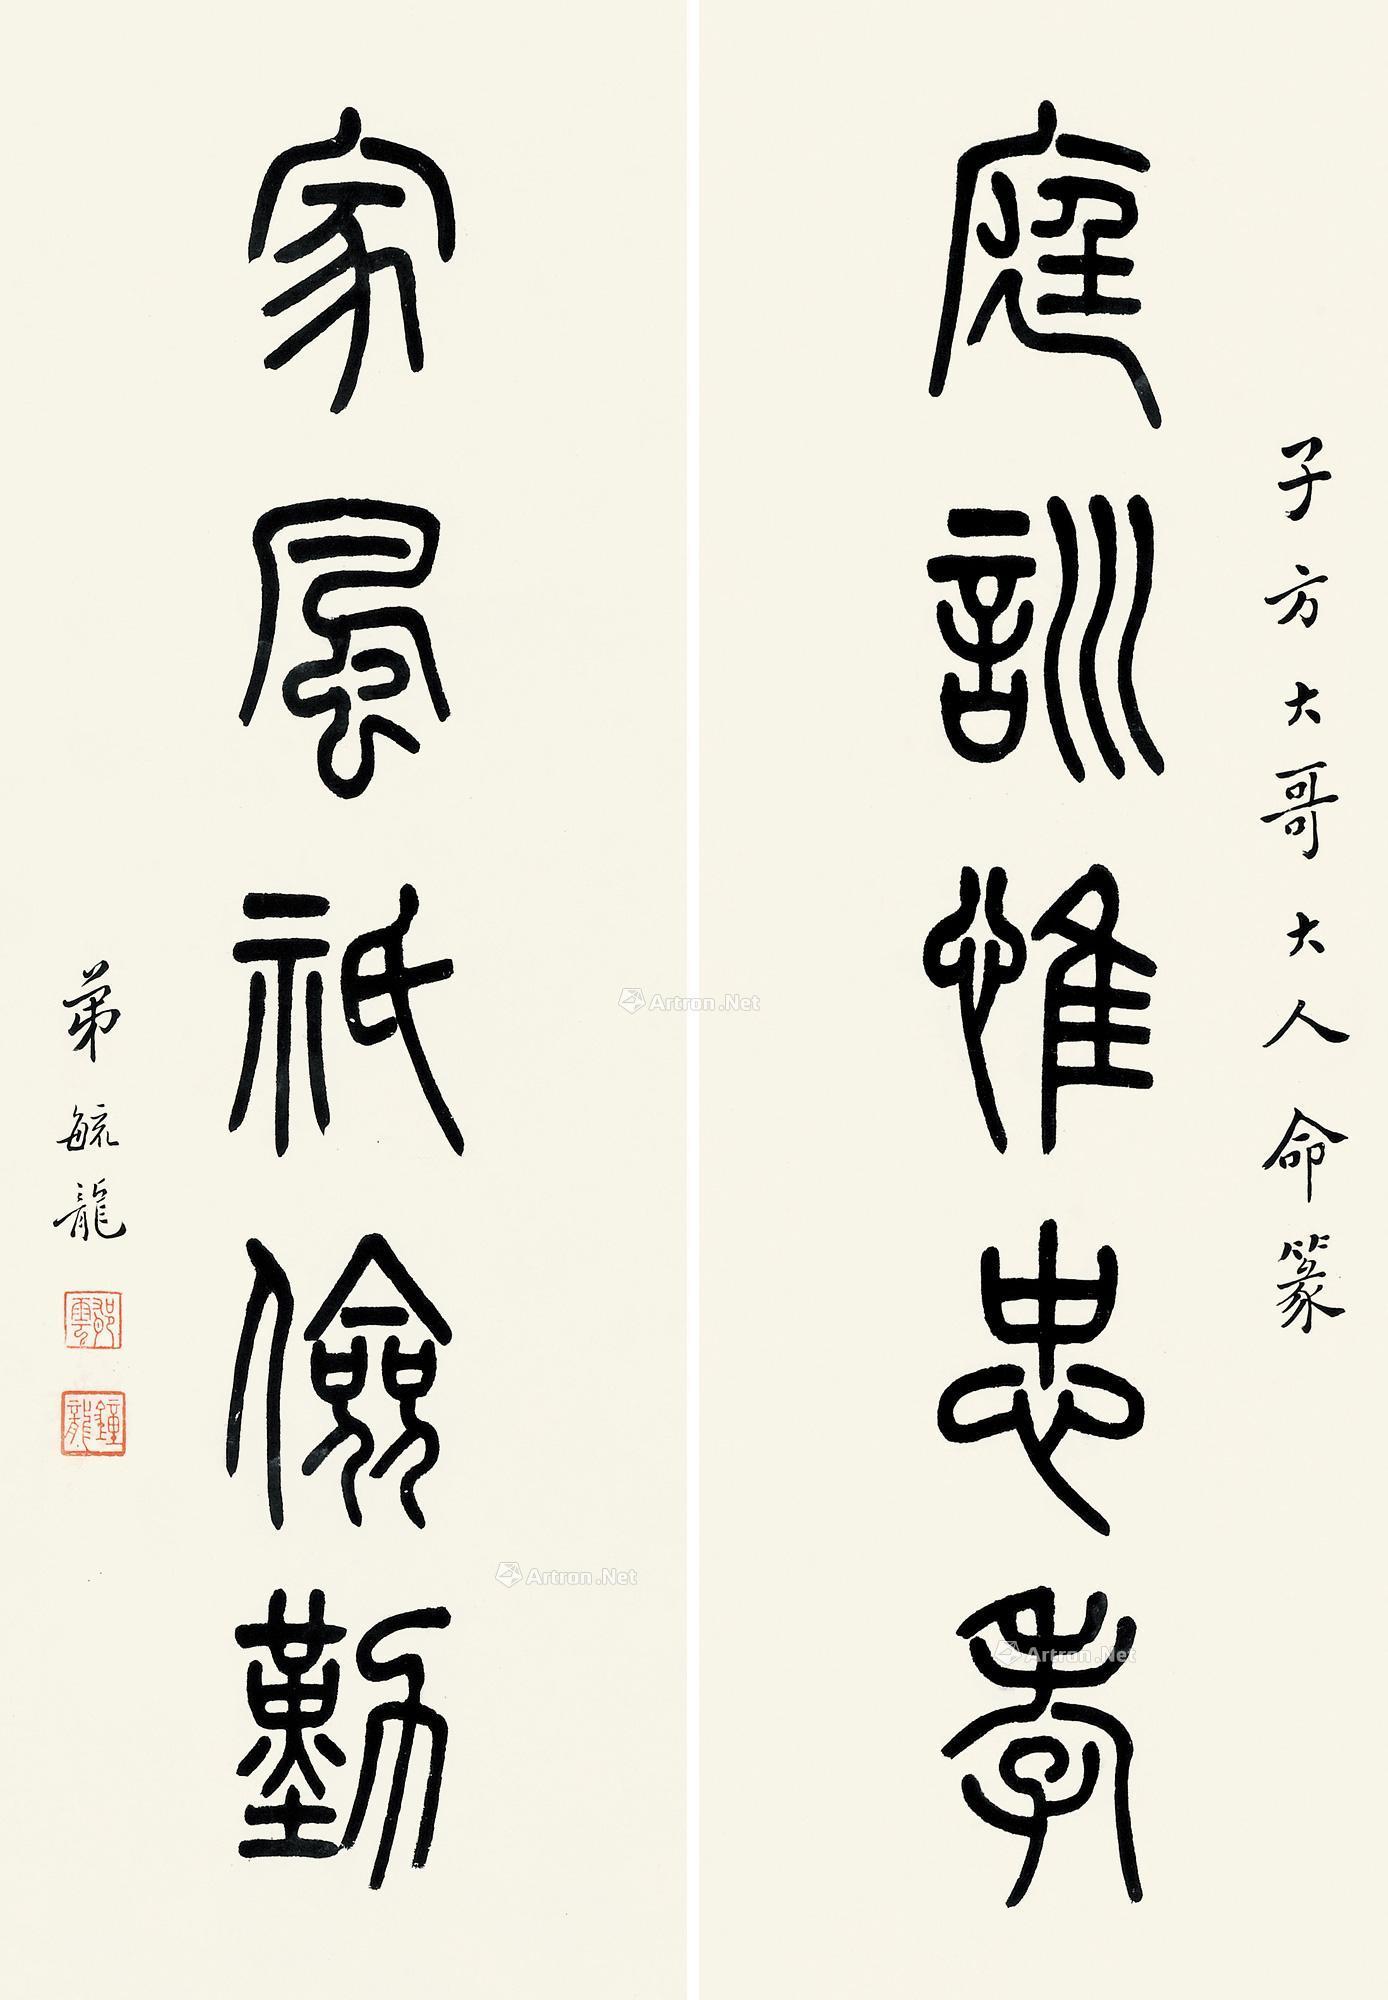 子方大哥大人命篆
庭訓惟忠孝
家風祇儉勤
弟毓龍
鍾龍
Artron.Net
Artron.Net
Artron.Net